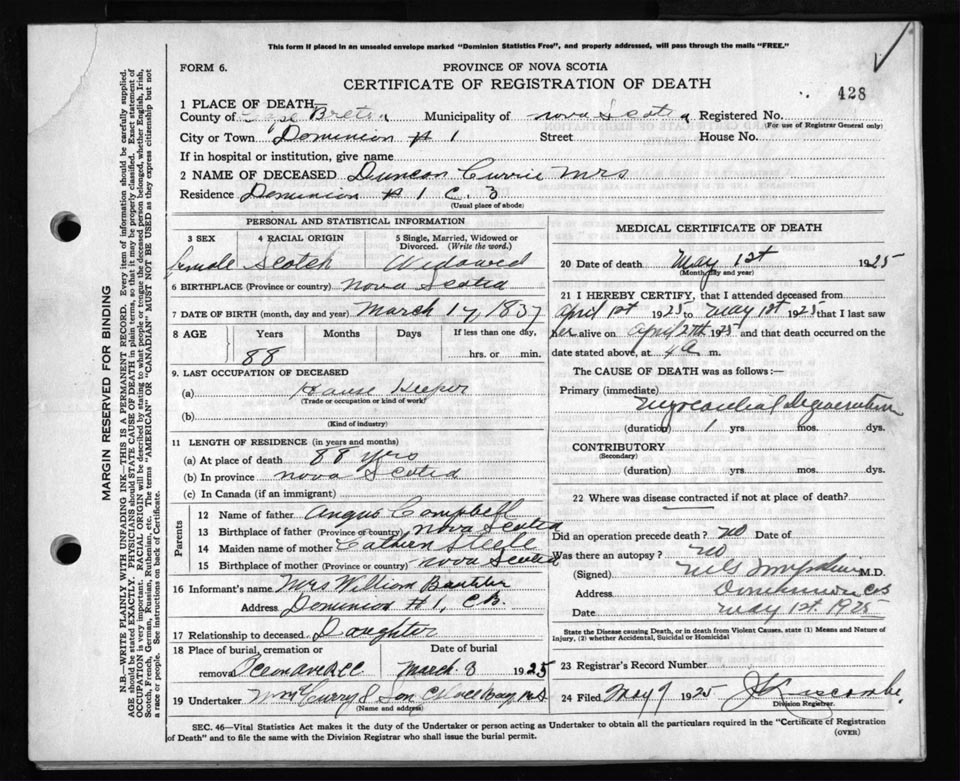 This form if placed in an unsealed envelope marked "Dominion Statistics Free", and properly addressed, will pass through the mails "FREE."
FORM 6.
PROVINCE OF NOVA SCOTIA
CERTIFICATE OF REGISTRATION OF DEATH
428
1 PLACE OF DEATH
County of Cape Breton Municipality of Nova Scotia Registered No.
(For use of Registrar General only)
City or Town Dominion # 1 Street House No.
If in hospital or institution, give name
2 NAME OF DECEASED Duncan Currie Mrs
Residence Dominion # 1 C. B
(Usual place of abode)
PERSONAL AND STATISTICAL INFORMATION
3 SEX 4 RACIAL ORIGIN 5 Single, Married, Widowed or Divorced. (Write the word.)
female Scotch Widowed
6 BIRTHPLACE (Province or country) Nova Scotia
7 DATE OF BIRTH (month, day and year) March 17, 1837
8 AGE Years Months Days If less than one day,
88 hrs. or min.
9. LAST OCCUPATION OF DECEASED
(a) House Keeper
(Trade or occupation or kind of work)
(b)
(Kind of industry)
11 LENGTH OF RESIDENCE (in years and months)
(a) At place of death 88 yrs
(b) In province Nova Scotia
(c) In Canada (if an immigrant)
Parents
12 Name of father Angus Campbell
13 Birthplace of father (Province or country) Nova Scotia
14 Maiden name of mother Cathern Steele
15 Birthplace of mother (Province or country) Nova Scotia
16 Informant's name Mrs William
Address Dominion #1, CB.
17 Relationship to deceased Daughter
18 Place of burial, cremation or removal Date of burial
March 3 1925
19 Undertaker & Son N S
(Name and address)
MEDICAL CERTIFICATE OF DEATH
20 Date of death May 1st 1925
(Month, day and year)
21 I HEREBY CERTIFY, that I attended deceased from
April 1st 1925 to May 1st 1925 that I last saw
her alive on April 27th 1925 and that death occurred on
date stated above, at 4 a m.
The CAUSE OF DEATH was as follows:—
Primary (immediate)
Myocardial Degeneration
(duration) 1 yrs mos. dys.
CONTRIBUTORY
(Secondary)
(duration) yrs. mos. dys.
22 Where was disease contracted if not at place of death?
Did an operation precede death? no Date of
Was there an autopsy? no
(Signed) M.D.
Address Dominion CB
Date May 1st 1925
State the Disease causing Death, or in death from Violent Causes, state (1) Means and Nature of Injury, (2) whether Accidental, Suicidal or Homicidal
23 Registrar's Record Number
24 Filed May 9 1925
Division Registrar.
SEC. 46—Vital Statistics Act makes it the duty of the Undertaker or person acting as Undertaker to obtain all the particulars required in the "Certificate of Registration
of Death" and to file the same with the Division Registrar who shall issue the burial permit.
(OVER)
MARGIN RESERVED FOR BINDING
N.B.—WRITE PLAINLY WITH UNFADING INK—THIS IS A PERMANENT RECORD. Every item of information should be carefully supplied.
AGE should be stated EXACTLY. PHYSICIANS should STATE CAUSE OF DEATH in plain terms, so that it may be properly classified. Exact statement of
OCCUPATION is very important. RACIAL ORIGIN will be described by stating to what people or tongue the deceased person belonged, whether English, Irish,
Scotch, French, German, Russian, Ruthenian, etc. The terms "AMERICAN" OR "CANADIAN" MUST NOT BE USED as they express citizenship but not
a race or people. See instructions on back of Certificate.